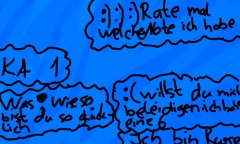 :) :) :) Rate mal
welche Note ich habe
KA 1
Was Wieso
bist du so
lich
:( willst du mich
beleidigen ich hab
eine
Ich bin